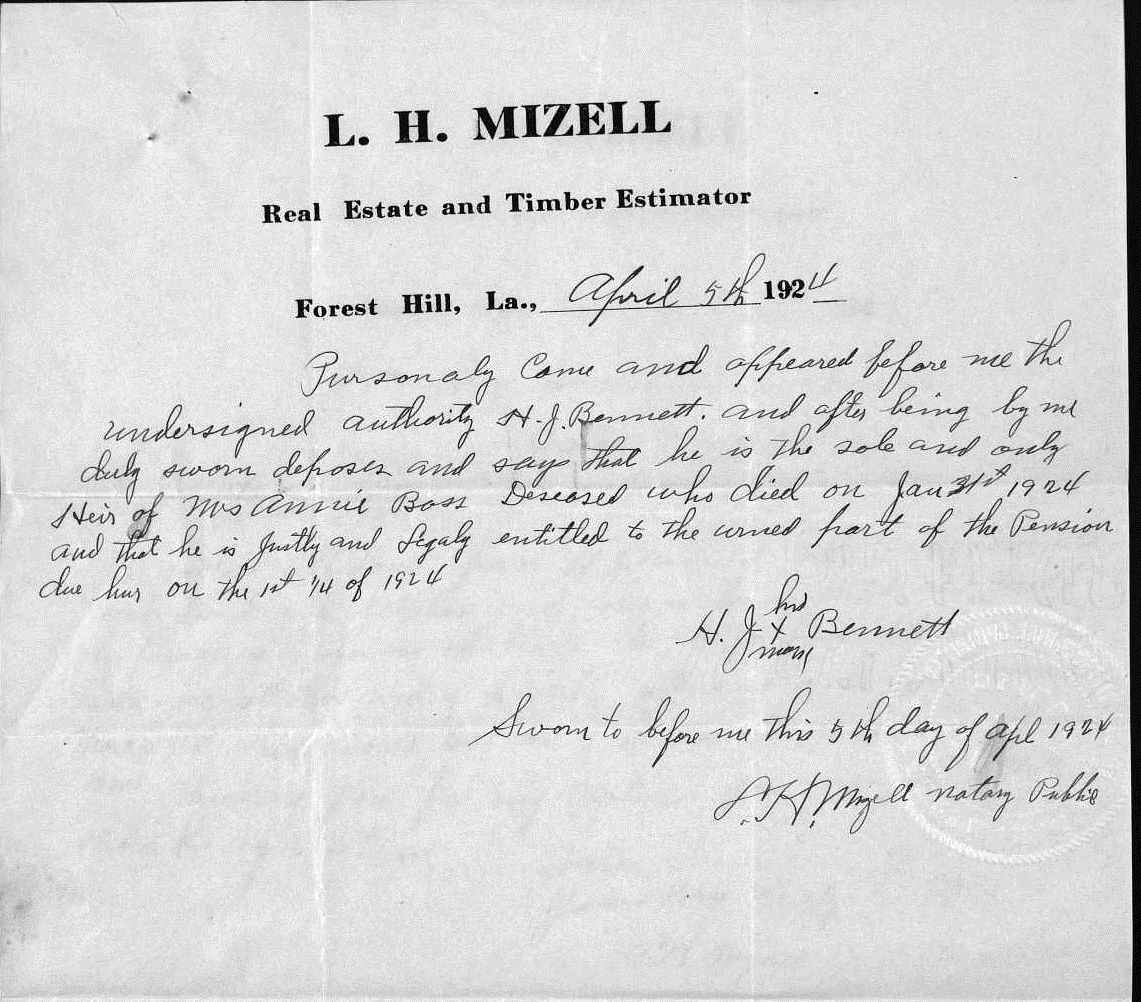 L. H. MIZELL
Real Estate and Timber Estimator
Forest Hill, La., April 5th 1924
Pursonaly Come and appeared before me the
undersigned authority H. J. Bennett. and after being by me
duly sworn deposes and says that he is the sole and only
Heir of Mrs Annie Bass Deseased who died on Jan 31st 1924
and that he is Justly and Legaly entitled to the urned part of the Pension
due hur on the 1st 1/4 of 1924
his
H. J. x Bennett
mark
Sworn to before me this 5th day of apl 1924
L. H. Mizell notary Public